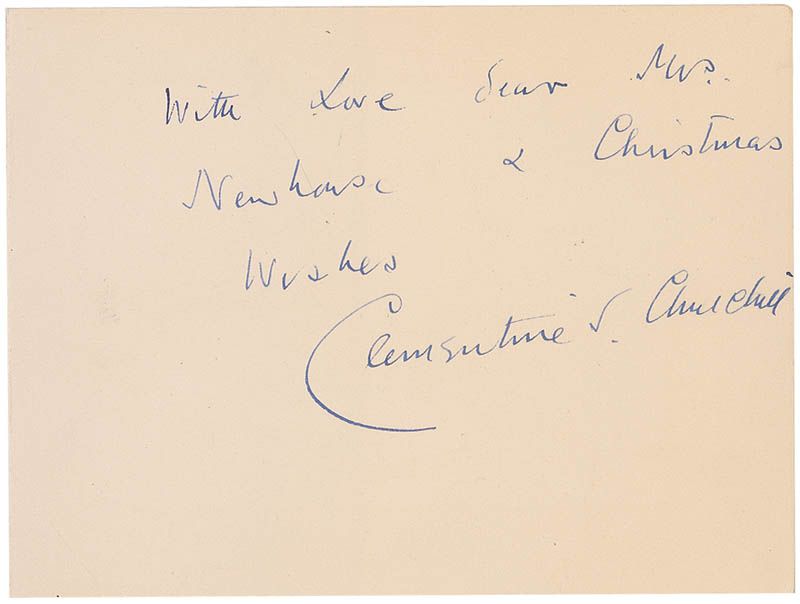 With Love dear Mrs.
Newhouse & Christmas
Wishes
Clementine S. Churchill